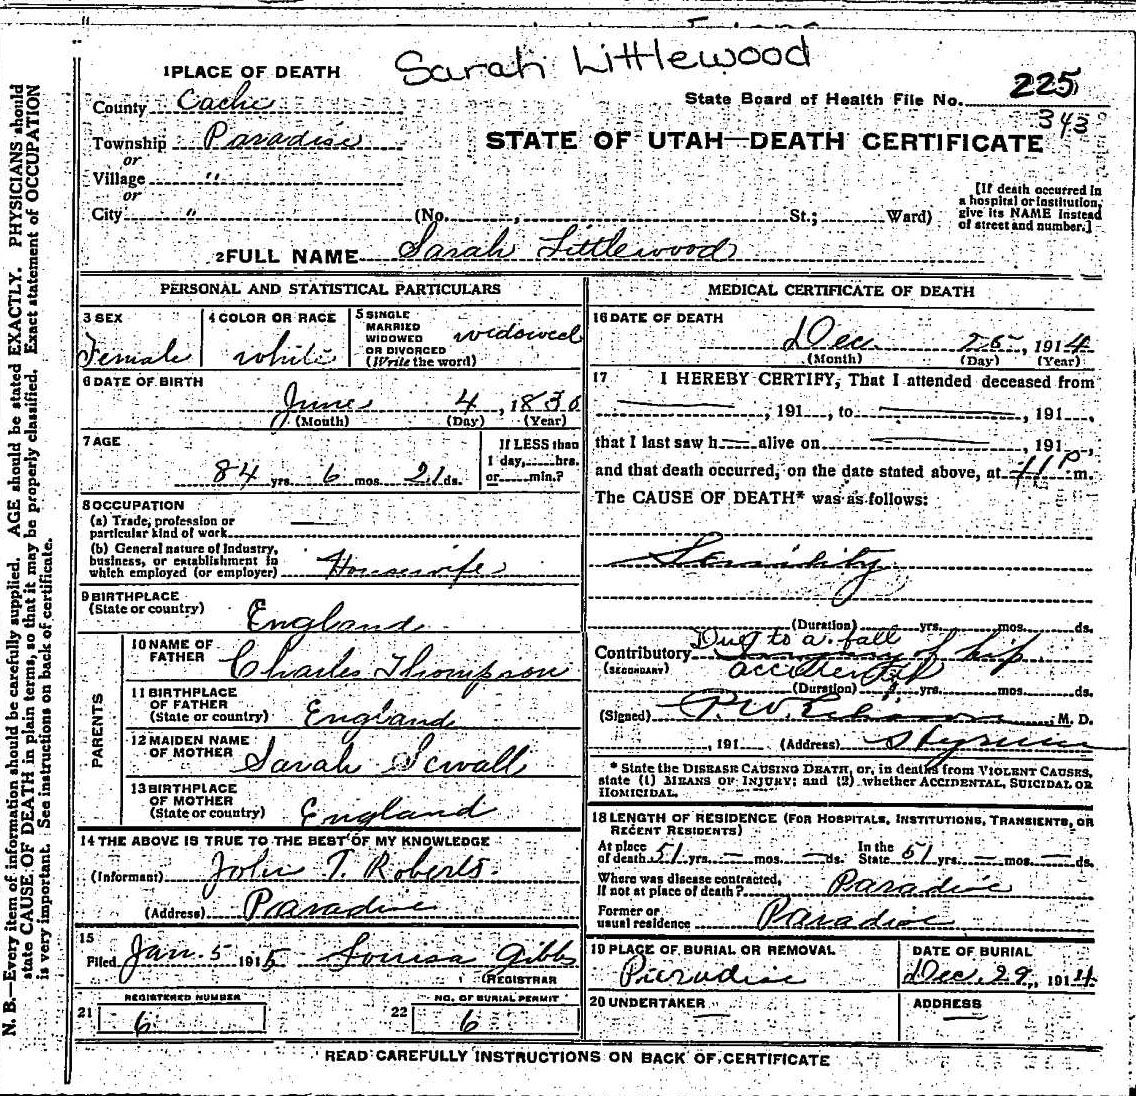 Sarah Littlewood
1 PLACE OF DEATH
225
State Board of Health File No.
343
County Cache
Township Paradise
STATE OF UTAH—DEATH CERTIFICATE
or
Village "
or
City " (No. , St.; Ward)
[If death occurred in
a hospital or institution,
give its NAME instead
of street and number.]
2 FULL NAME Sarah Littlewood
PERSONAL AND STATISTICAL PARTICULARS
3 SEX
Female
4 COLOR OR RACE
white
5 SINGLE
MARRIED
WIDOWED
OR DIVORCED
(Write the word)
widowed
6 DATE OF BIRTH
June 4, 1830
(Month) (Day) (Year)
7 AGE
84 yrs. 6 mos. 21 ds.
If LESS than
1 day, hrs.
or min.?
8 OCCUPATION
(a) Trade, profession or
particular kind of work
(b) General nature of industry,
business, or establishment in
which employed (or employer) Housewife
9 BIRTHPLACE
(State or country) England
PARENTS
10 NAME OF
FATHER Charles Thompson
11 BIRTHPLACE
OF FATHER
(State or country) England
12 MAIDEN NAME
OF MOTHER Sarah Sewall
13 BIRTHPLACE
OF MOTHER
(State or country) England
14 THE ABOVE IS TRUE TO THE BEST OF MY KNOWLEDGE
(Informant) John T. Roberts.
(Address) Paradise
15
Filed Jan. 5 1915 Louisa Gibbs
REGISTRAR
REGISTERED NUMBER
21 6
NO. OF BURIAL PERMIT
22 6
MEDICAL CERTIFICATE OF DEATH
16 DATE OF DEATH
Dec 25, 1914
(Month) (Day) (Year)
17 I HEREBY CERTIFY, That I attended deceased from
, 191 , to , 191 ,
that I last saw h alive on , 191 ,
and that death occurred, on the date stated above, at 11 P m.
The CAUSE OF DEATH* was as follows:
Senility
(Duration) yrs. mos. ds.
Due to a fall
Contributory of hip
(SECONDARY)
accidental
(Duration) yrs. mos. ds.
(Signed) M. D.
, 191 (Address)
* State the DISEASE CAUSING DEATH, or, in deaths from VIOLENT CAUSES,
state (1) MEANS OF INJURY; and (2) whether ACCIDENTAL, SUICIDAL OR
HOMICIDAL.
18 LENGTH OF RESIDENCE (FOR HOSPITALS, INSTITUTIONS, TRANSIENTS, OR
RECENT RESIDENTS)
At place
of death 51 yrs. — mos. — ds.
In the
State 51 yrs. — mos. — ds.
Where was disease contracted,
If not at place of death? Paradise
Former or
usual residence Paradise
19 PLACE OF BURIAL OR REMOVAL
Paradise
DATE OF BURIAL
Dec. 29, 1914
20 UNDERTAKER
—
ADDRESS
—
READ CAREFULLY INSTRUCTIONS ON BACK OF CERTIFICATE
N. B.—Every item of information should be carefully supplied. AGE should be stated EXACTLY. PHYSICIANS should
state CAUSE OF DEATH in plain terms, so that it may be properly classified. Exact statement of OCCUPATION
is very important. See instructions on back of certificate.